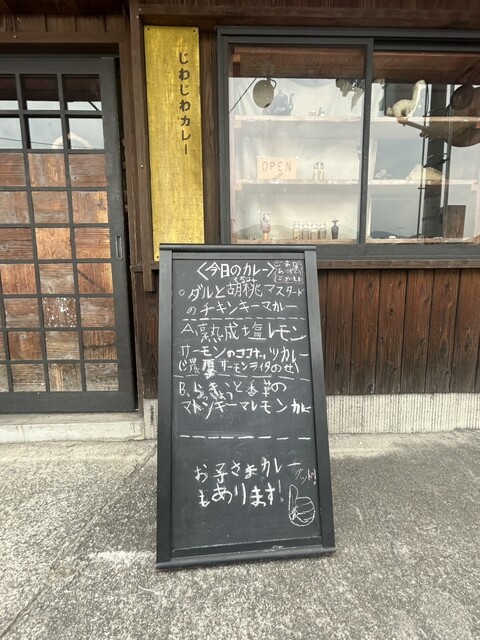 じわじわカレー
OPEN
〈今日のカレー〉
○ダルと胡桃マスタード
くるみ
のチキンキーマカレー
A,熟成塩レモン
サーモンのココナッツカレー
(濃厚サーモンライタのせ)
B,らっきょうと香草の
マトンキーマレモンカレー
お子さまカレー
もあります!
グッド!